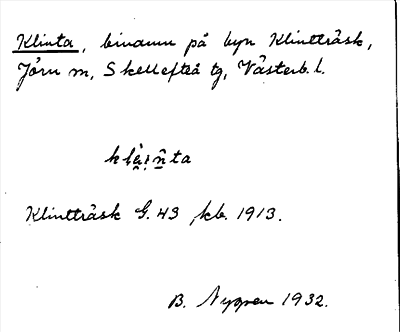 Klinta, binamn på byn Klintträsk,
Jörn sn, Skellefteå tg, Västerb. l.
Klintträsk G. 43, kb. 1913.
B. Nygren 1932.